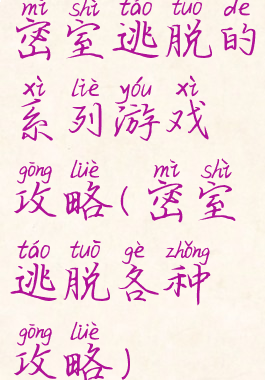 mì shì táo tuō de
密室逃脱的
xì liè yóu xì
系列游戏
gōng lüè mì shì
攻略(密室
táo tuō gè zhǒng
逃脱各种
gōng lüè
攻略)